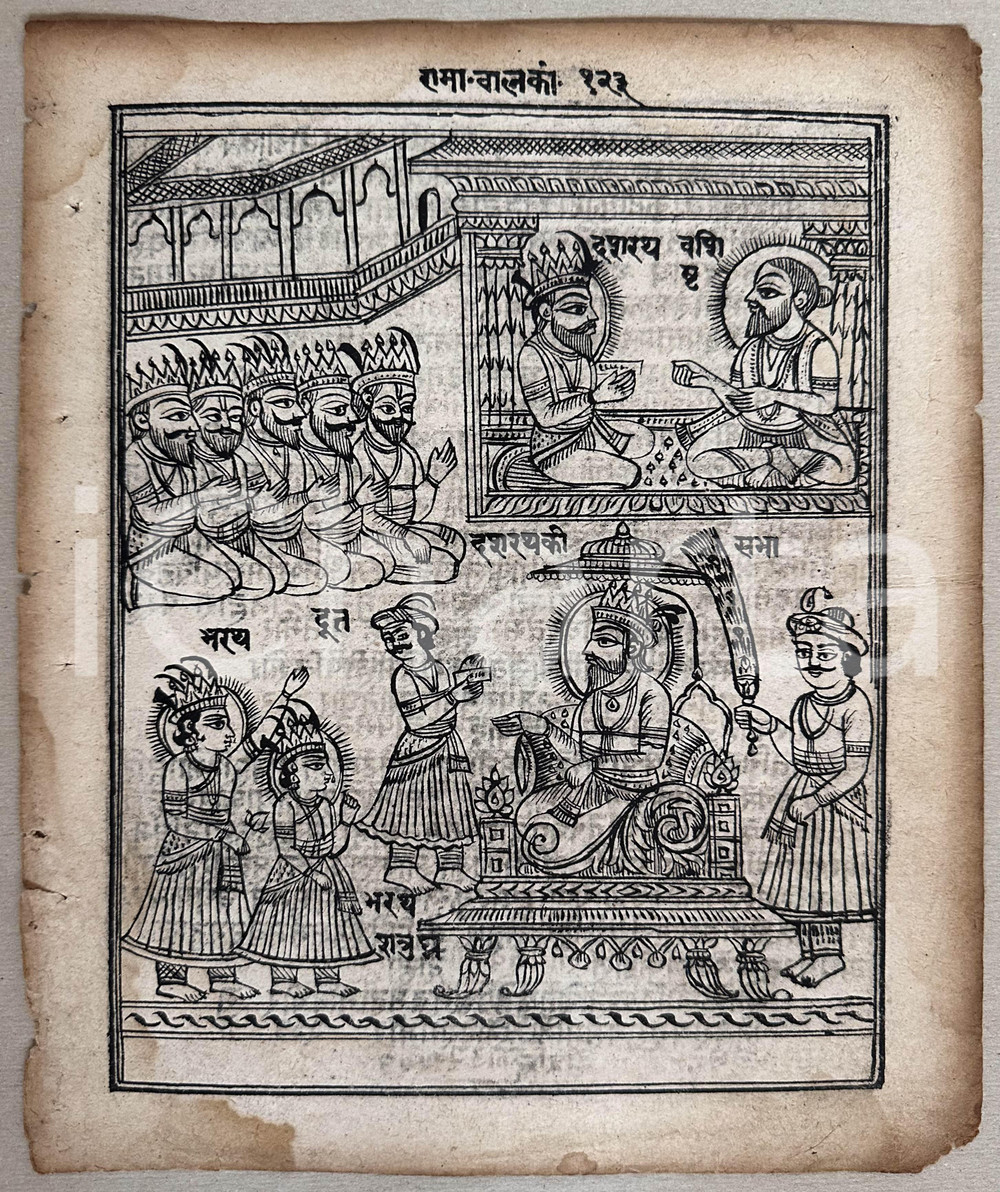 रामा॰वालकां॰ १२३
दशरथ वशि
ष्ठ
दशरथकी सभा
भरथ दूत
भरथ
शत्रुघ्न